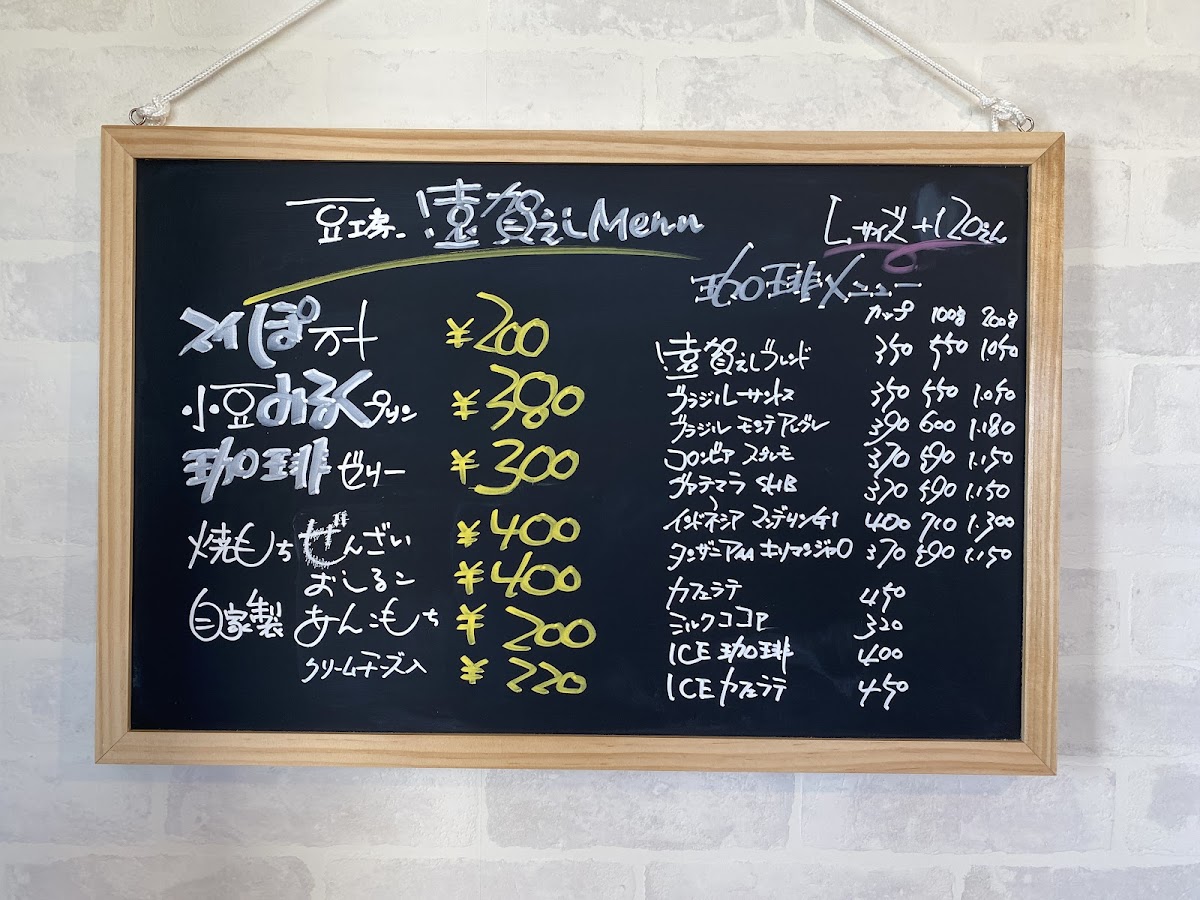 豆工房 遠賀えし Menu
スイぽテト ¥200
小豆みるくプリン ¥380
珈琲ゼリー ¥300
焼もち ぜんざい ¥400
おしるこ ¥400
自家製 あんこもち ¥200
クリームチーズ入 ¥220
Lサイズ +120えん
珈琲メニュー
カップ 100g 200g
遠賀えしブレンド 350 550 1.050
ブラジルサントス 350 550 1.050
ブラジル モンテアレグレ 390 600 1.180
コロンビア スプレモ 370 590 1.150
グァテマラ SHB 370 590 1.150
インドネシア マンデリンG1 400 710 1.300
タンザニアAA キリマンジャロ 370 590 1.150
カフェラテ 450
ミルクココア 320
ICE 珈琲 400
ICE カフェラテ 450